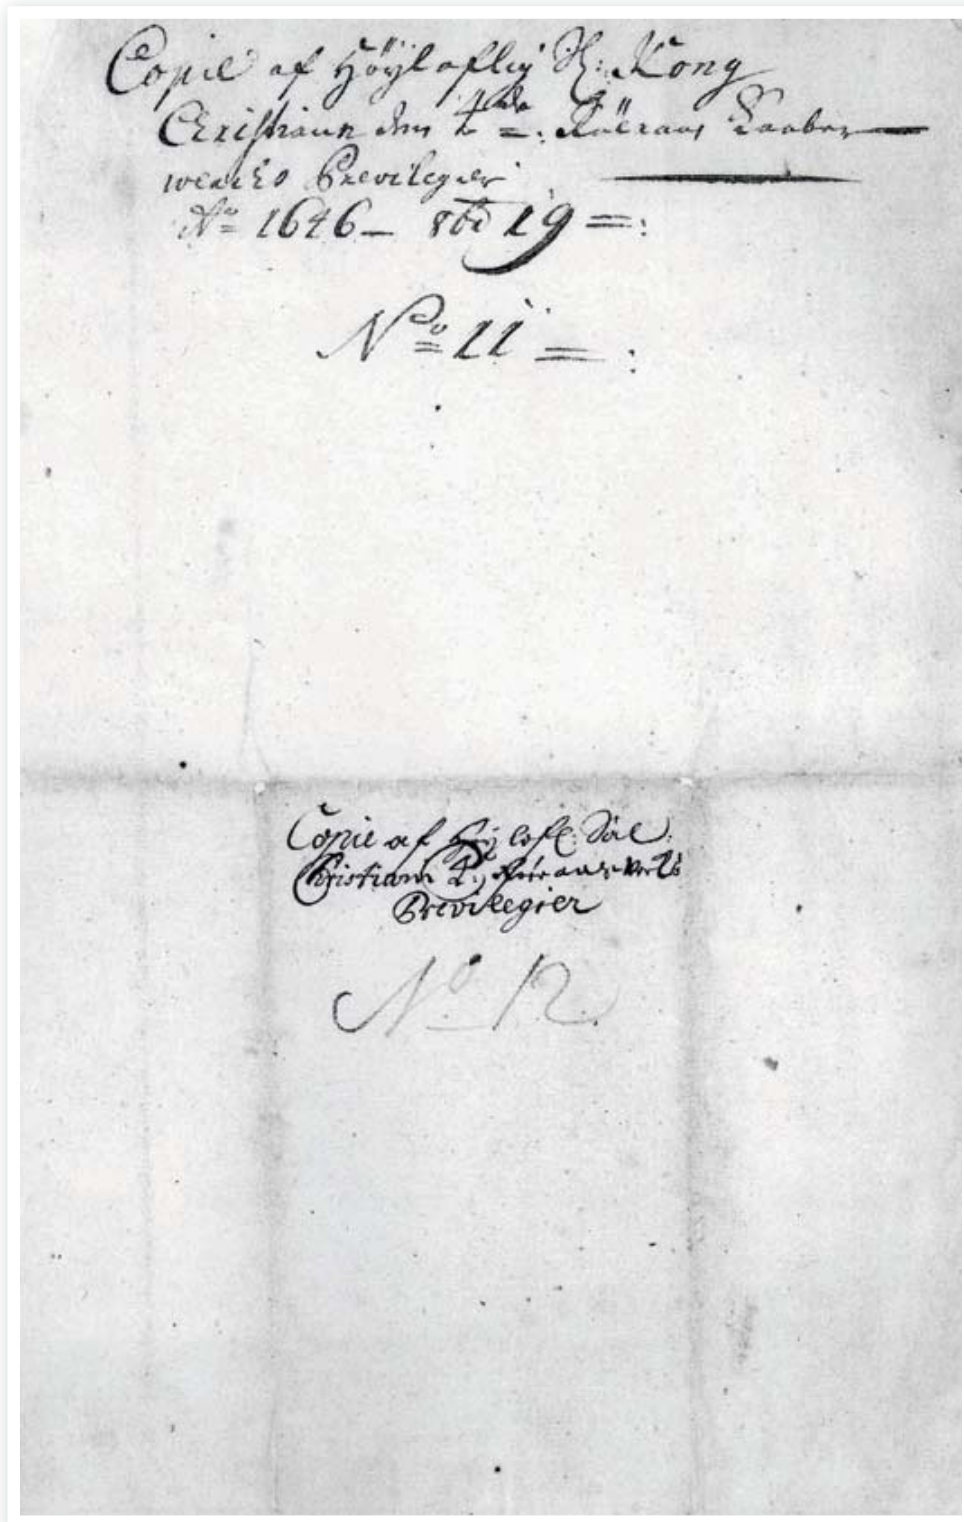 Copie af Höyloflig S: Kong
Christian den 4de =: Röeraas Kaaber
wercks Previlegier
Ao= 1646 – 8bd 19 =:
No= 11 = :
Copie af Höy lofl: Sal:
Christian 4: Röraas Vercks
Previlegier
No 12.